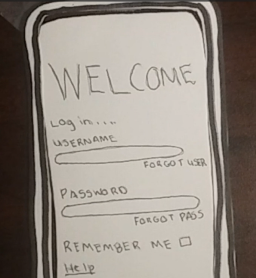 WELCOME
Log in....
USERNAME
FORGOT USER
PASSWORD
FORGOT PASS
REMEMBER ME
Help